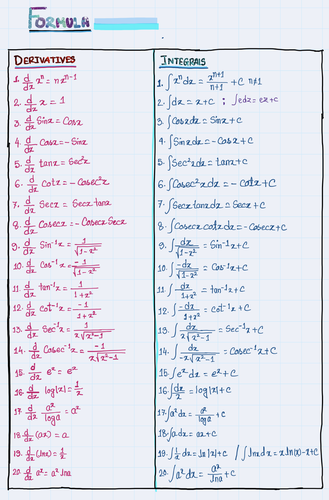 FORMULA
DERIVATIVES
1. d/dx xⁿ = nxⁿ⁻¹
2. d/dx x = 1
3. d/dx Sinx = Cosx
4. d/dx Cosx = -Sinx
5. d/dx tanx = Sec²x
6. d/dx Cotx = -Cosec²x
7. d/dx Secx = Secx.tanx
8. d/dx Cosecx = -Cosecx.Secx
9. d/dx Sin⁻¹x = 1/√(1-x²)
10. d/dx Cos⁻¹x = -1/√(1-x²)
11. d/dx tan⁻¹x = 1/(1+x²)
12. d/dx Cot⁻¹x = -1/(1+x²)
13. d/dx Sec⁻¹x = 1/(x√(x²-1))
14. d/dx Cosec⁻¹x = -1/(x√(x²-1))
15. d/dx eˣ = eˣ
16. d/dx log|x| = 1/x
17. d/dx aˣ/loga = aˣ
18. d/dx (ax) = a
19. d/dx (lnx) = 1/x
20. d/dx aˣ = aˣ lna
INTEGRALS
1. ∫xⁿdx = xⁿ⁺¹/(n+1) + C n≠1
2. ∫dx = x+C ; ∫edx = ex+C
3. ∫Cosxdx = Sinx+C
4. ∫Sinxdx = -Cosx+C
5. ∫Sec²xdx = tanx+C
6. ∫Cosec²xdx = -Cotx+C
7. ∫Secxtanxdx = Secx+C
8. ∫Cosecxcotxdx = -Cosecx+C
9. ∫dx/√(1-x²) = Sin⁻¹x+C
10. ∫-dx/√(1-x²) = Cos⁻¹x+C
11. ∫dx/(1+x²) = tan⁻¹x+C
12. ∫-dx/(1+x²) = cot⁻¹x+C
13. ∫dx/(x√(x²-1)) = Sec⁻¹x+C
14. ∫dx/(-x√(x²-1)) = Cosec⁻¹x+C
15. ∫eˣdx = eˣ+C
16. ∫dx/x = log|x|+C
17. ∫aˣdx = aˣ/loga +C
18. ∫adx = ax+C
19. ∫1/x dx = ln|x|+C / ∫lnxdx = xln(x)-x+C
20. ∫aˣdx = aˣ/lna +C